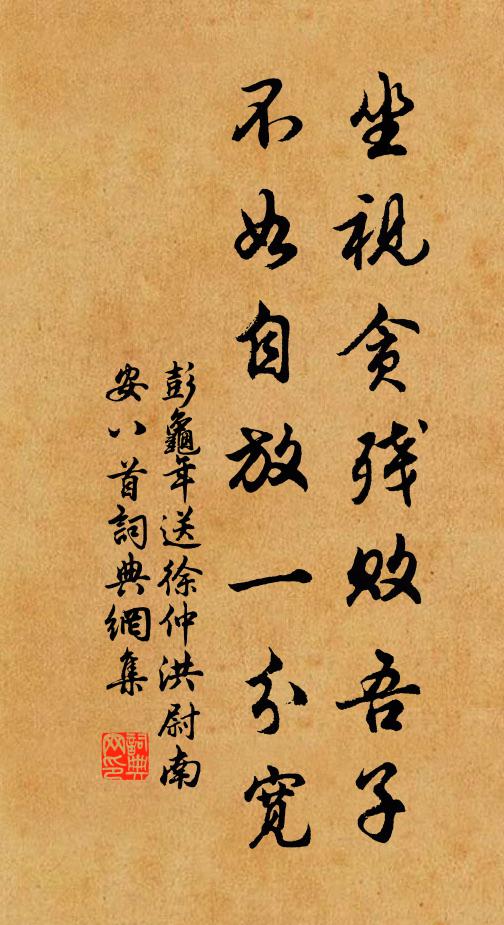 坐視貪残败吾子
不如自放一分寬
彭龜年送徐仲洪尉南
安八首詞典網集
詞典网印